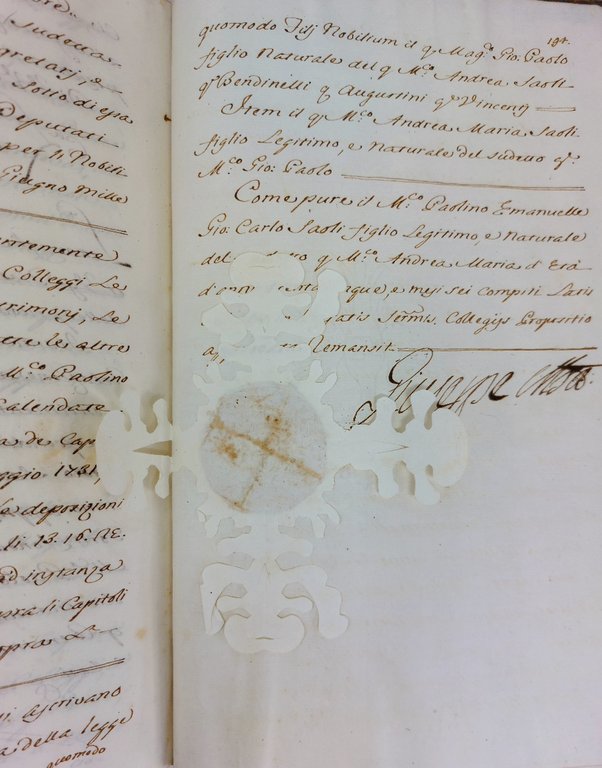 Sudetta
gretarj, e
Sotto di essa
Deputati
per li Nobili
Giugno mille
ntemente
Colleggi Le
rimonj, Le
le altre
M.co Paolino
Calendate
a de Cap
ggio 1731,
e deposizioni
li 13.16.
ad instanza
pra li Capitoli
pra L
ascrivano
a della legge
quomodo
194.
quomodo Filij Nobilium il q Mag.co Gio: Paolo
figlio Naturale del q M.co Andrea Saoli
q Bendinelli q Augustini q Vincenij
Item il q M.co Andrea Maria Saoli
figlio Legitimo, e Naturale del sudetto q
M.co Gio: Paolo
Come pure il M.co Paolino Emanuelle
Gio: Carlo Saoli figlio Legitimo, e Naturale
del q M.co Andrea Maria d'Età
d'anni eque, e mesi sei compiti Latis
atis Serm.is Collegijs Propositio
Remansit
Giuseppe